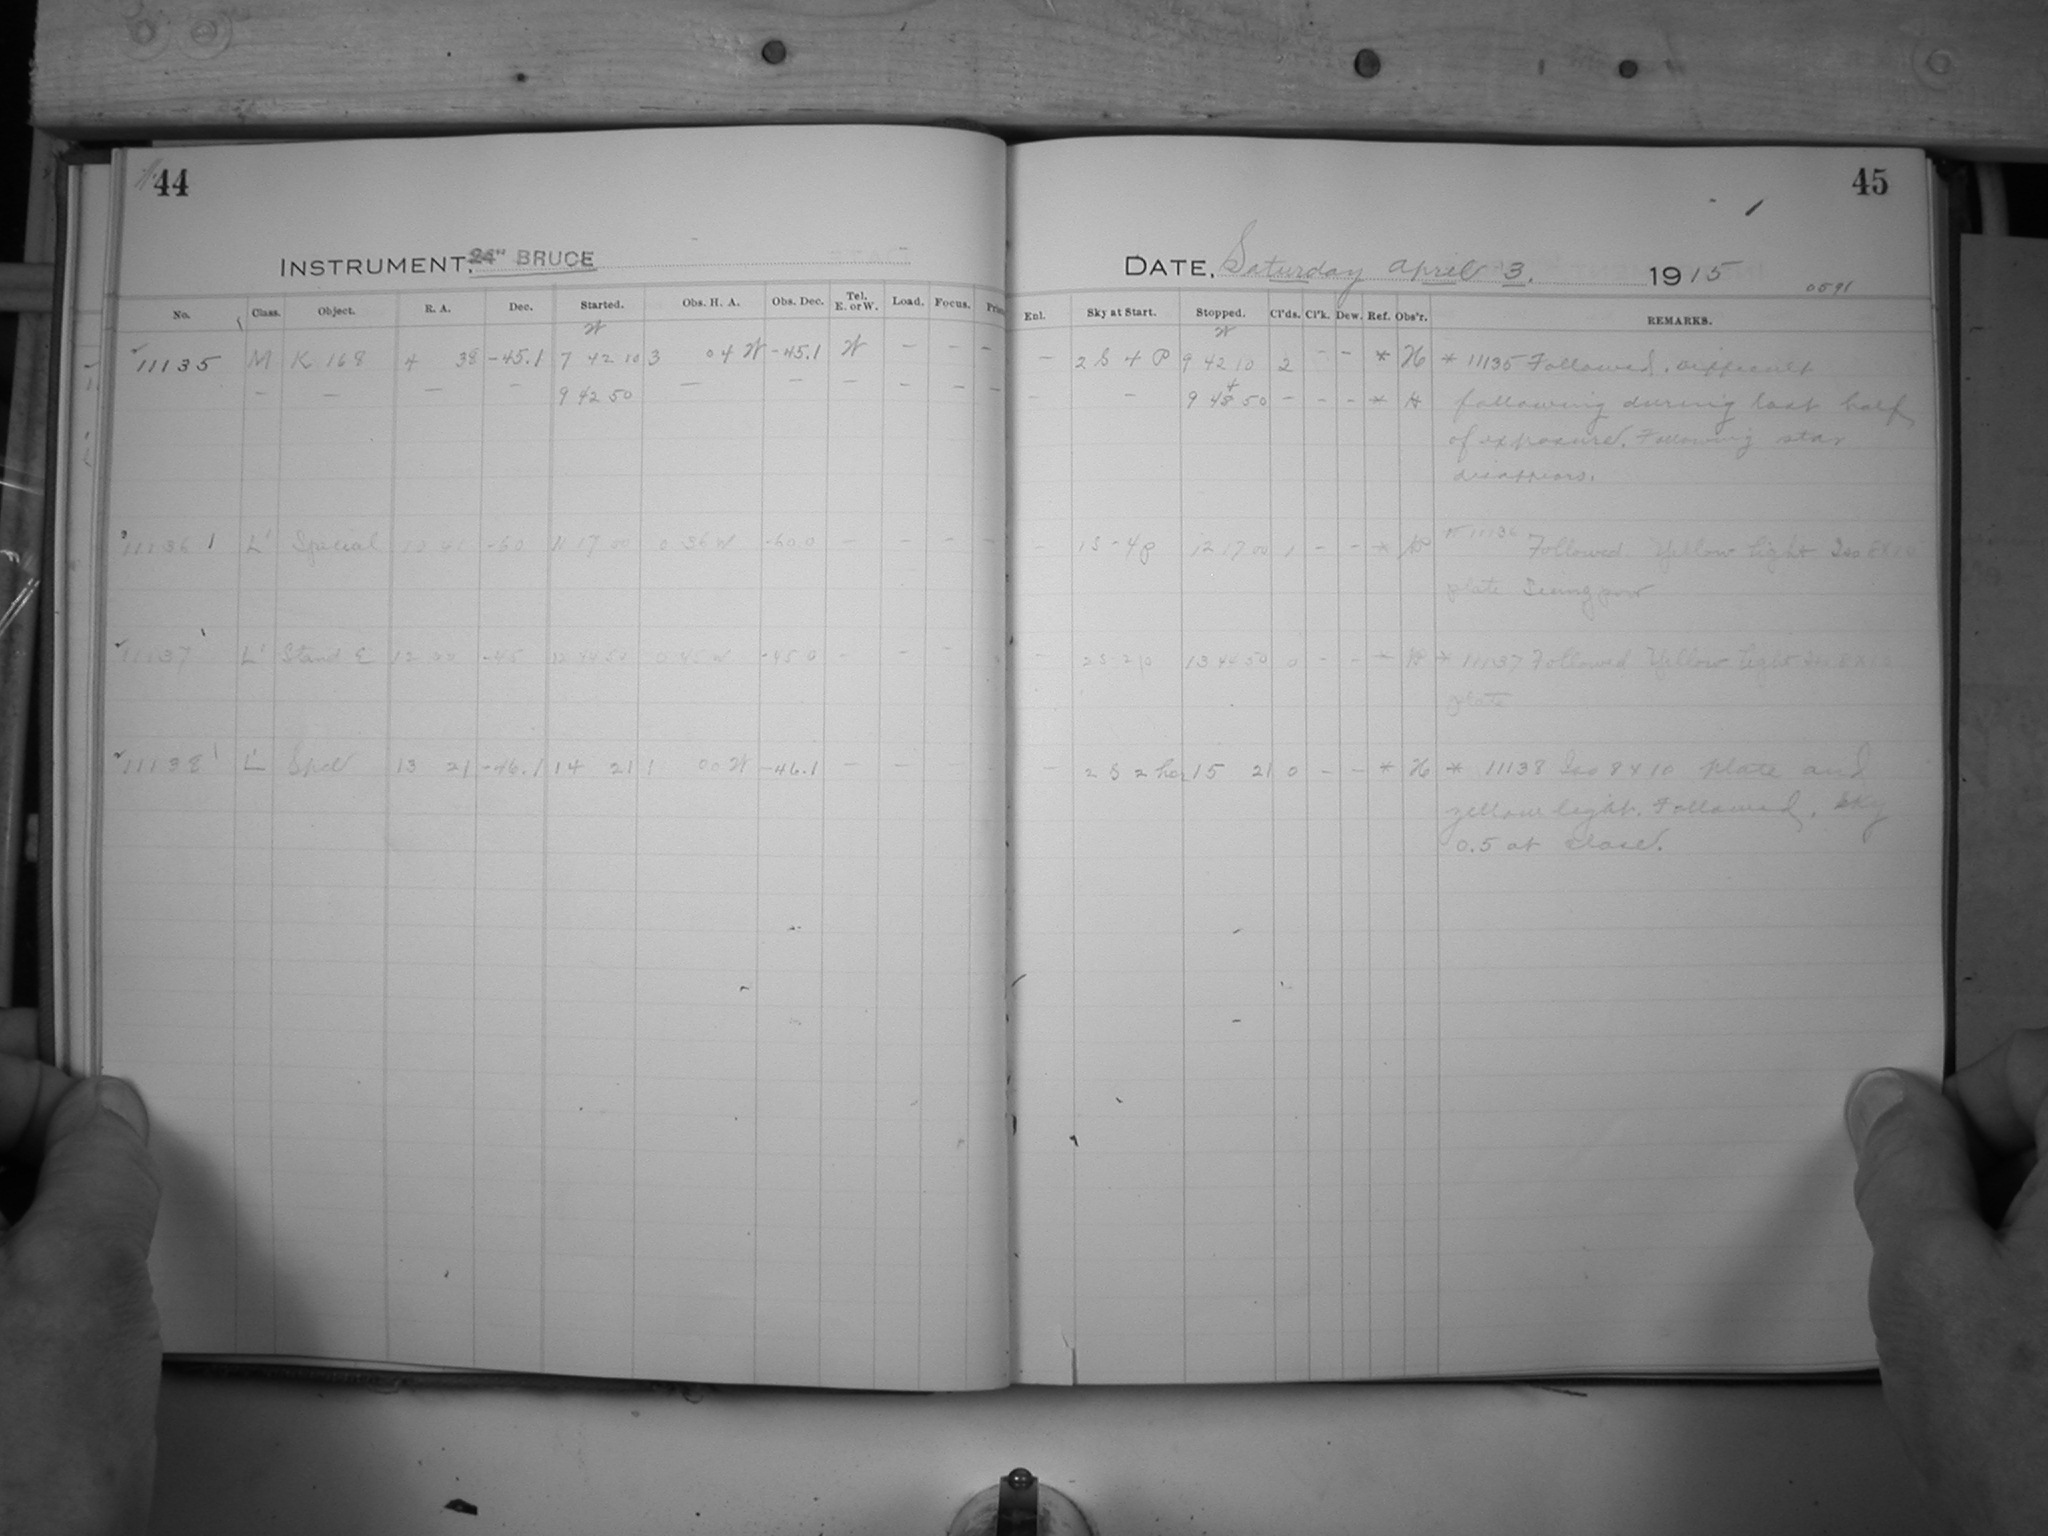 44
INSTRUMENT, 24" BRUCE
No. Class. Object. R. A. Dec. Started. Obs. H. A. Obs. Dec. Tel. E. or W. Load. Focus.
W
11135 M K 168 4 38 -45.1 7 42 10 3 04 W -45.1 W - - -
- - - - 9 42 50 - - - - - -
11136 L' Special -60 11 17 00 0 36 W -60 0 - - - -
11137 L' Stand E 12 -45 0 45 W -45 0 - - - -
11138 L' Spel 13 21 -46.1 14 21 1 00 W -46.1 - - - -
45
DATE, Saturday April 3. 1915
0591
Enl. Sky at Start. Stopped. Cl'ds. Cl'k. Dew. Ref. Obs'r. REMARKS.
W
- 2 S 4 P 9 42 10 2 - - * H * 11135 Followed, difficult
- - 9 50 - - - * H following during last half
of exposure. Following star
disappears.
- 1 S - 4 p 12 17 00 1 - - * 11136 Followed. Yellow light Iso 8x10
plate Seeing poor
- 2 S 2 p 13 44 50 0 - - * * 11137 Followed Yellow light Iso 8x10
plate
- 2 S 2 15 21 0 - - * H * 11138 Iso 8 x 10 plate and
yellow light. Followed. Sky
0.5 at close.